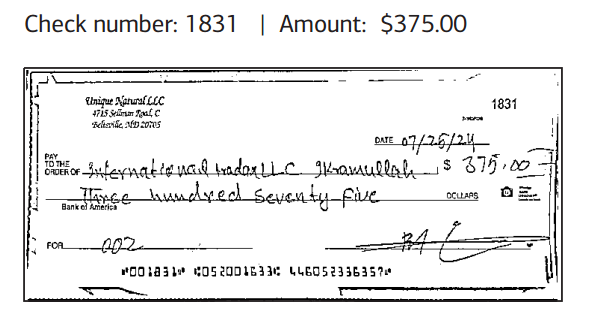 Check number: 1831 | Amount: $375.00
Unique Natural LLC
4715 Sellman Road, C
Beltsville, MD 20705
1831
DATE 07/25/24
PAY
TO THE
ORDER OF International tradar LLC Ikramullah $ 375.00
Three hundred Seventy Five DOLLARS
Bank of America
FOR 002
⑈001831⑈ ⑆052001633⑆ 446052336357⑈